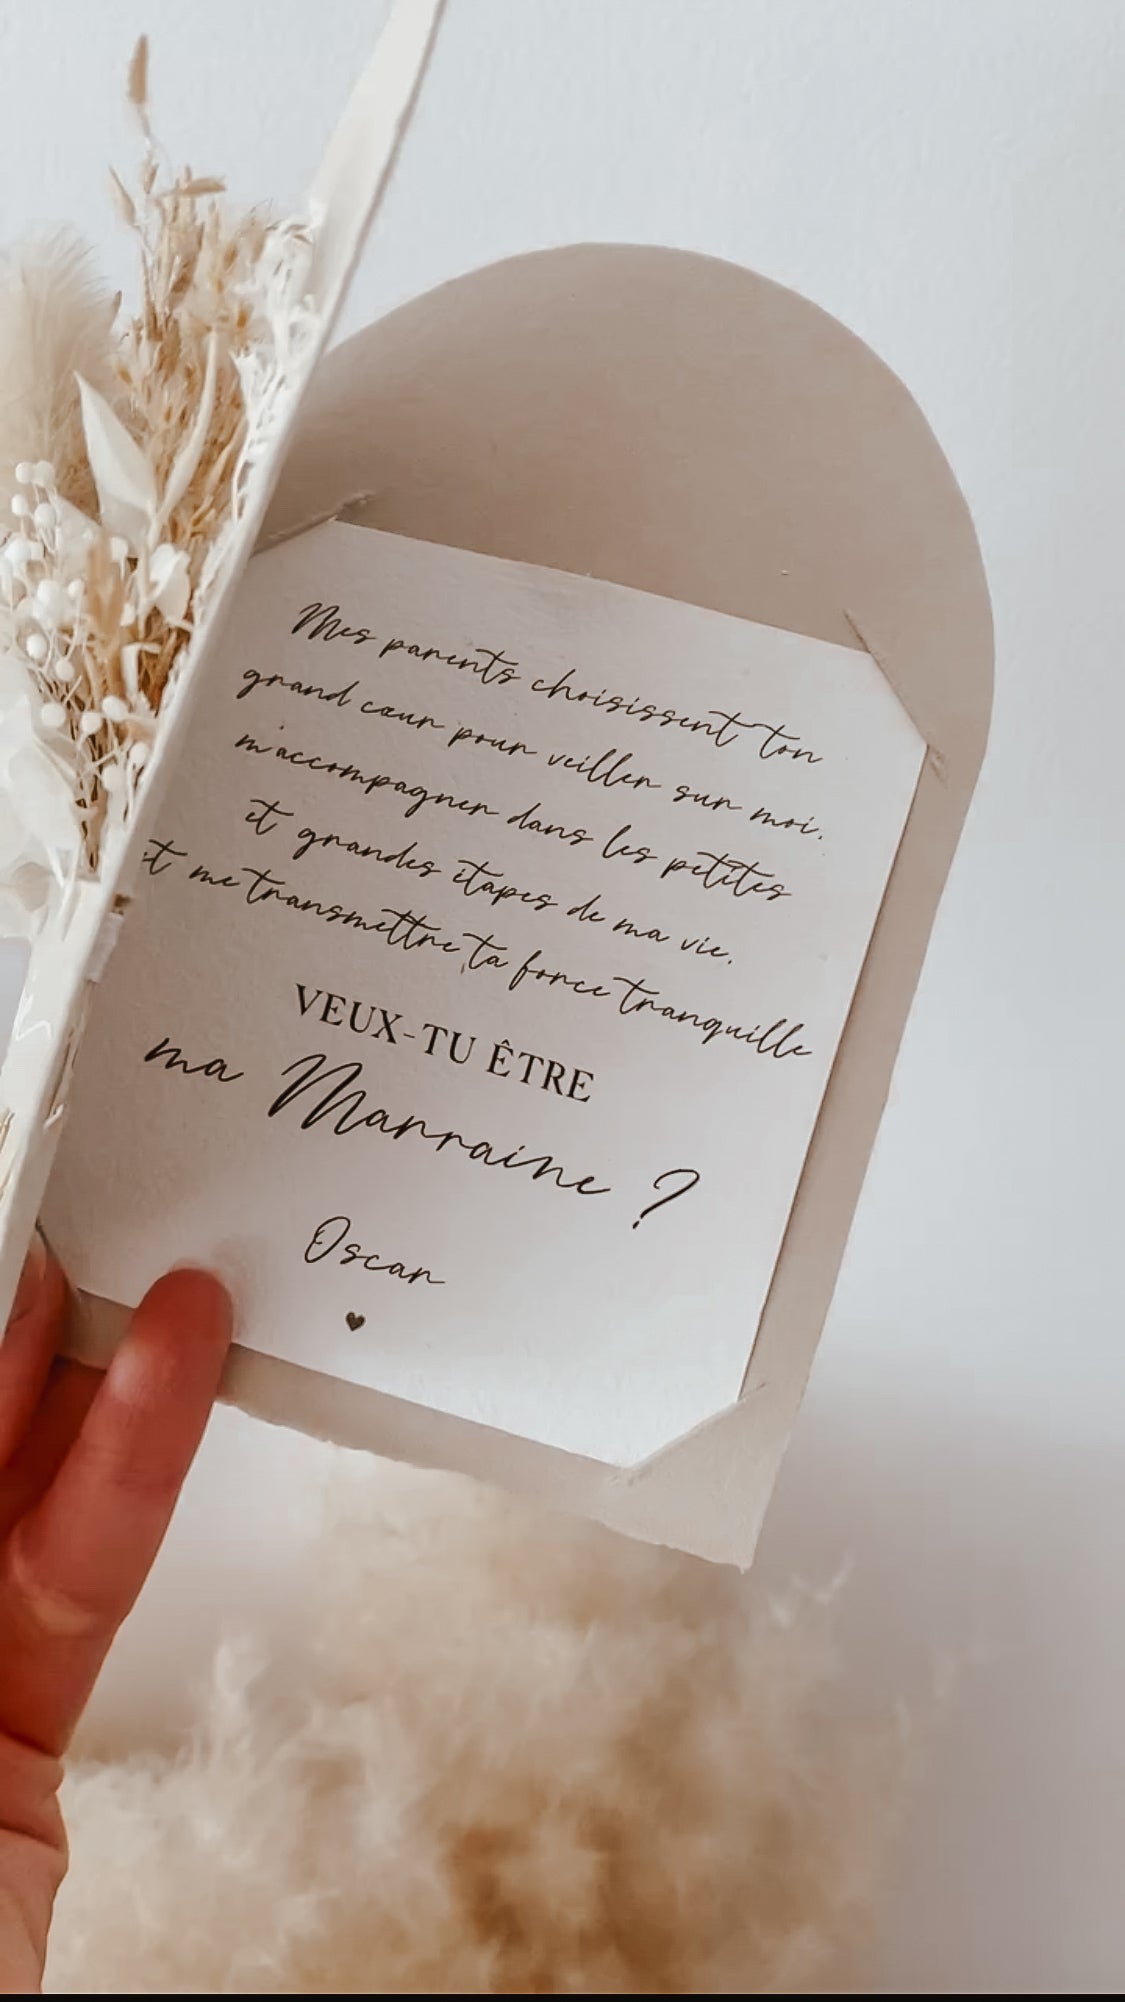 Mes parents choisissent ton
grand cœur pour veiller sur moi.
m'accompagner dans les petites
et grandes étapes de ma vie.
et me transmettre ta force tranquille
VEUX-TU ÊTRE
ma Marraine ?
Oscar